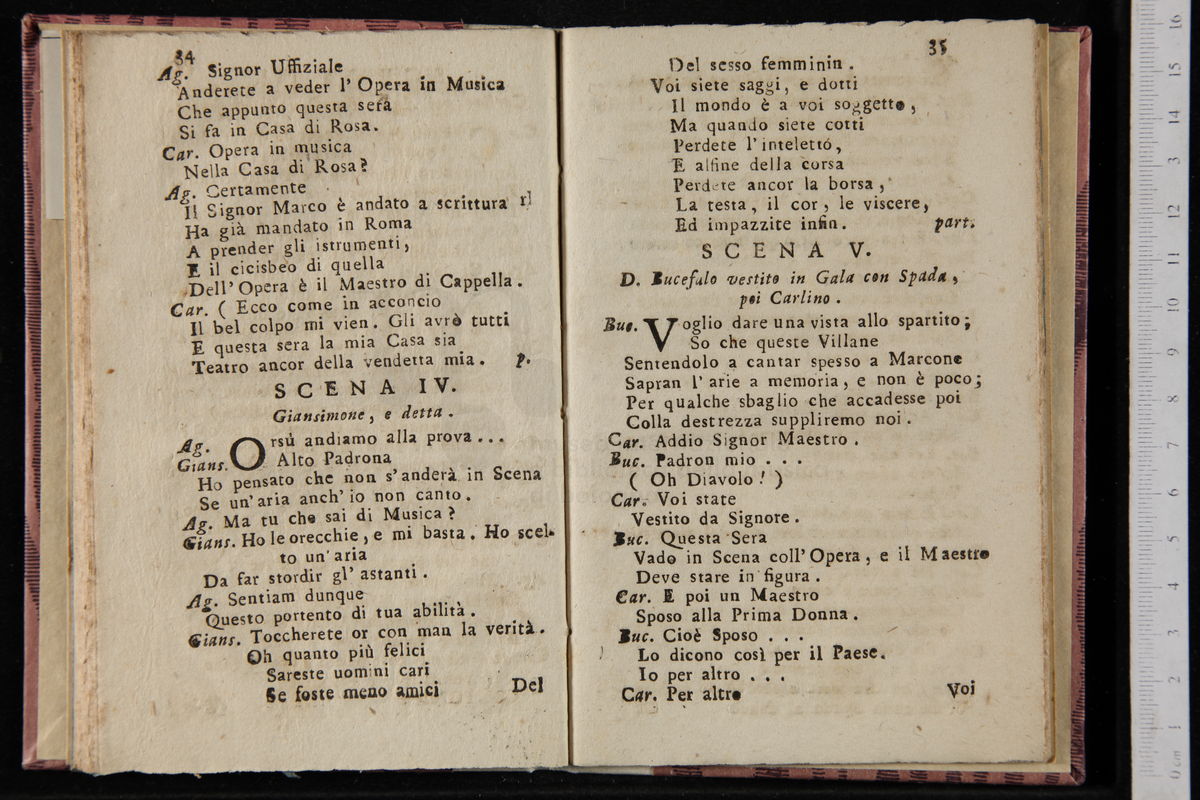 34
Ag. Signor Uffiziale
Anderete a veder l' Opera in Musica
Che appunto questa sera
Si fa in Casa di Rosa.
Car. Opera in musica
Nella Casa di Rosa?
Ag. Certamente
Il Signor Marco è andato a scrittura rl
Ha già mandato in Roma
A prender gli istrumenti,
E il cicisbeo di quella
Dell' Opera è il Maestro di Cappella.
Car. ( Ecco come in acconcio
Il bel colpo mi vien. Gli avrò tutti
E questa sera la mia Casa sia
Teatro ancor della vendetta mia. p.
SCENA IV.
Giansimone, e detta.
Ag. Orsù andiamo alla prova...
Gians. Alto Padrona
Ho pensato che non s'anderà in Scena
Se un'aria anch' io non canto.
Ag. Ma tu che sai di Musica?
Gians. Ho le orecchie, e mi basta. Ho scel-
to un' aria
Da far stordir gl' astanti.
Ag. Sentiam dunque
Questo portento di tua abilità.
Gians. Toccherete or con man la verità.
Oh quanto più felici
Sareste uomini cari
Se foste meno amici
Del
35
Del sesso femminin.
Voi siete saggi, e dotti
Il mondo è a voi soggetto,
Ma quando siete cotti
Perdete l' intelettò,
E alfine della corsa
Perdete ancor la borsa,
La testa, il cor, le viscere,
Ed impazzite infin. part.
SCENA V.
D. Bucefalo vestito in Gala con Spada,
poi Carlino.
Buc. Voglio dare una vista allo spartito;
So che queste Villane
Sentendolo a cantar spesso a Marcone
Sapran l' arie a memoria, e non è poco;
Per qualche sbaglio che accadesse poi
Colla destrezza suppliremo noi.
Car. Addio Signor Maestro.
Buc. Padron mio . . .
( Oh Diavolo! )
Car. Voi state
Vestito da Signore.
Buc. Questa Sera
Vado in Scena coll' Opera, e il Maestro
Deve stare in figura.
Car. E poi un Maestro
Sposo alla Prima Donna.
Buc. Cioè Sposo . . .
Lo dicono così per il Paese.
Io per altro . . .
Car. Per altro
Voi